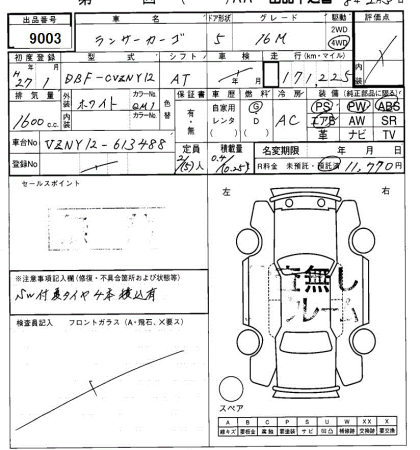 出品番号 9003
車名 ランサーカーゴ
ドア形状 5
グレード 16M
駆動 2WD 4WD
評価点
初度登録 H 27年 1月
型式 DBF-CVZNY12
シフト AT
車検 年 月
走行 (km・マイル) 171,225
内装
排気量 1600 c.c.
外装 ホワイト カラーNo. QM1
内装 カラーNo.
色替
保証書 有・無
車歴 自家用 レンタ ( )
燃料 G D ( )
冷房 AC
装備 (純正部品に限る)
PS PW ABS
エアB AW SR
革 ナビ TV
車台No VZNY12-613488
登録No
定員 2/(5)人
積載量 0.4/(0.25)
名変期限 年 月 日
R料金 未預託・預託済 11,770円
セールスポイント
左 右
※注意事項記入欄 (修復・不具合箇所および状態等)
SW付夏タイヤ4本積込有
検査員記入 フロントガラス (A・飛石、X要ス)
無し
クレーム
スペア
A B C P S U W X XX
線キズ 要板金 腐蝕 要塗装 サビ 凹凸 補修跡 交換跡 要交換